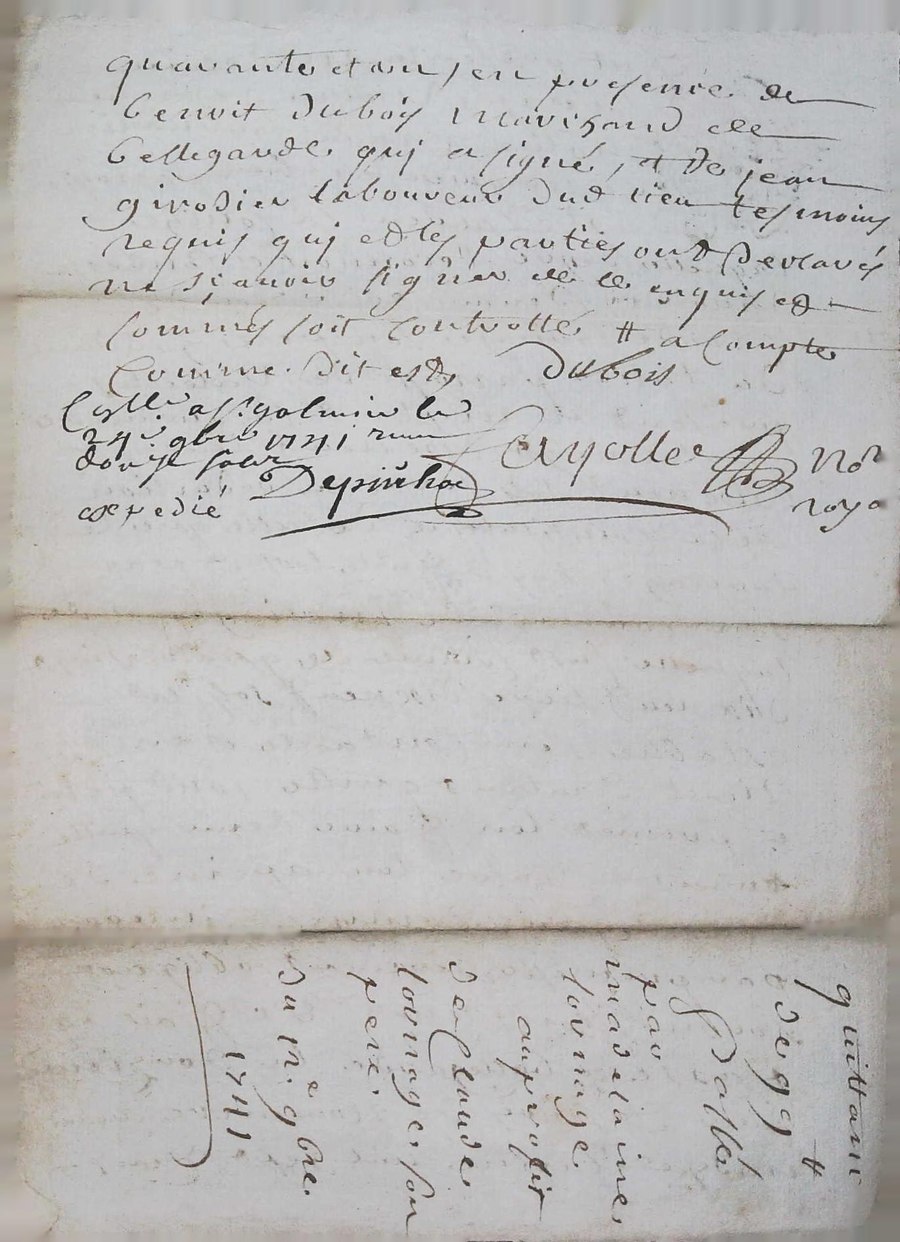 quarante et un, en presence de
benoit dubois marchand de
bellegarde, qui a signé, et de jean
girodier laboureur dud lieu tesmoins
requis qui et les parties ont declarés
ne sçavoir signer de ce enquis et
sommés soit controllé # a compte
comme dit est,
Dubois
Collé a St galmier le
24e 9bre 1741
douze sols
Depinhac
expedié
Not
roya
quittance
de 99 #
passée
par
madelaine
tornage
au profit
de Claude
tornage son
pere.
Du 12e 9bre.
1741